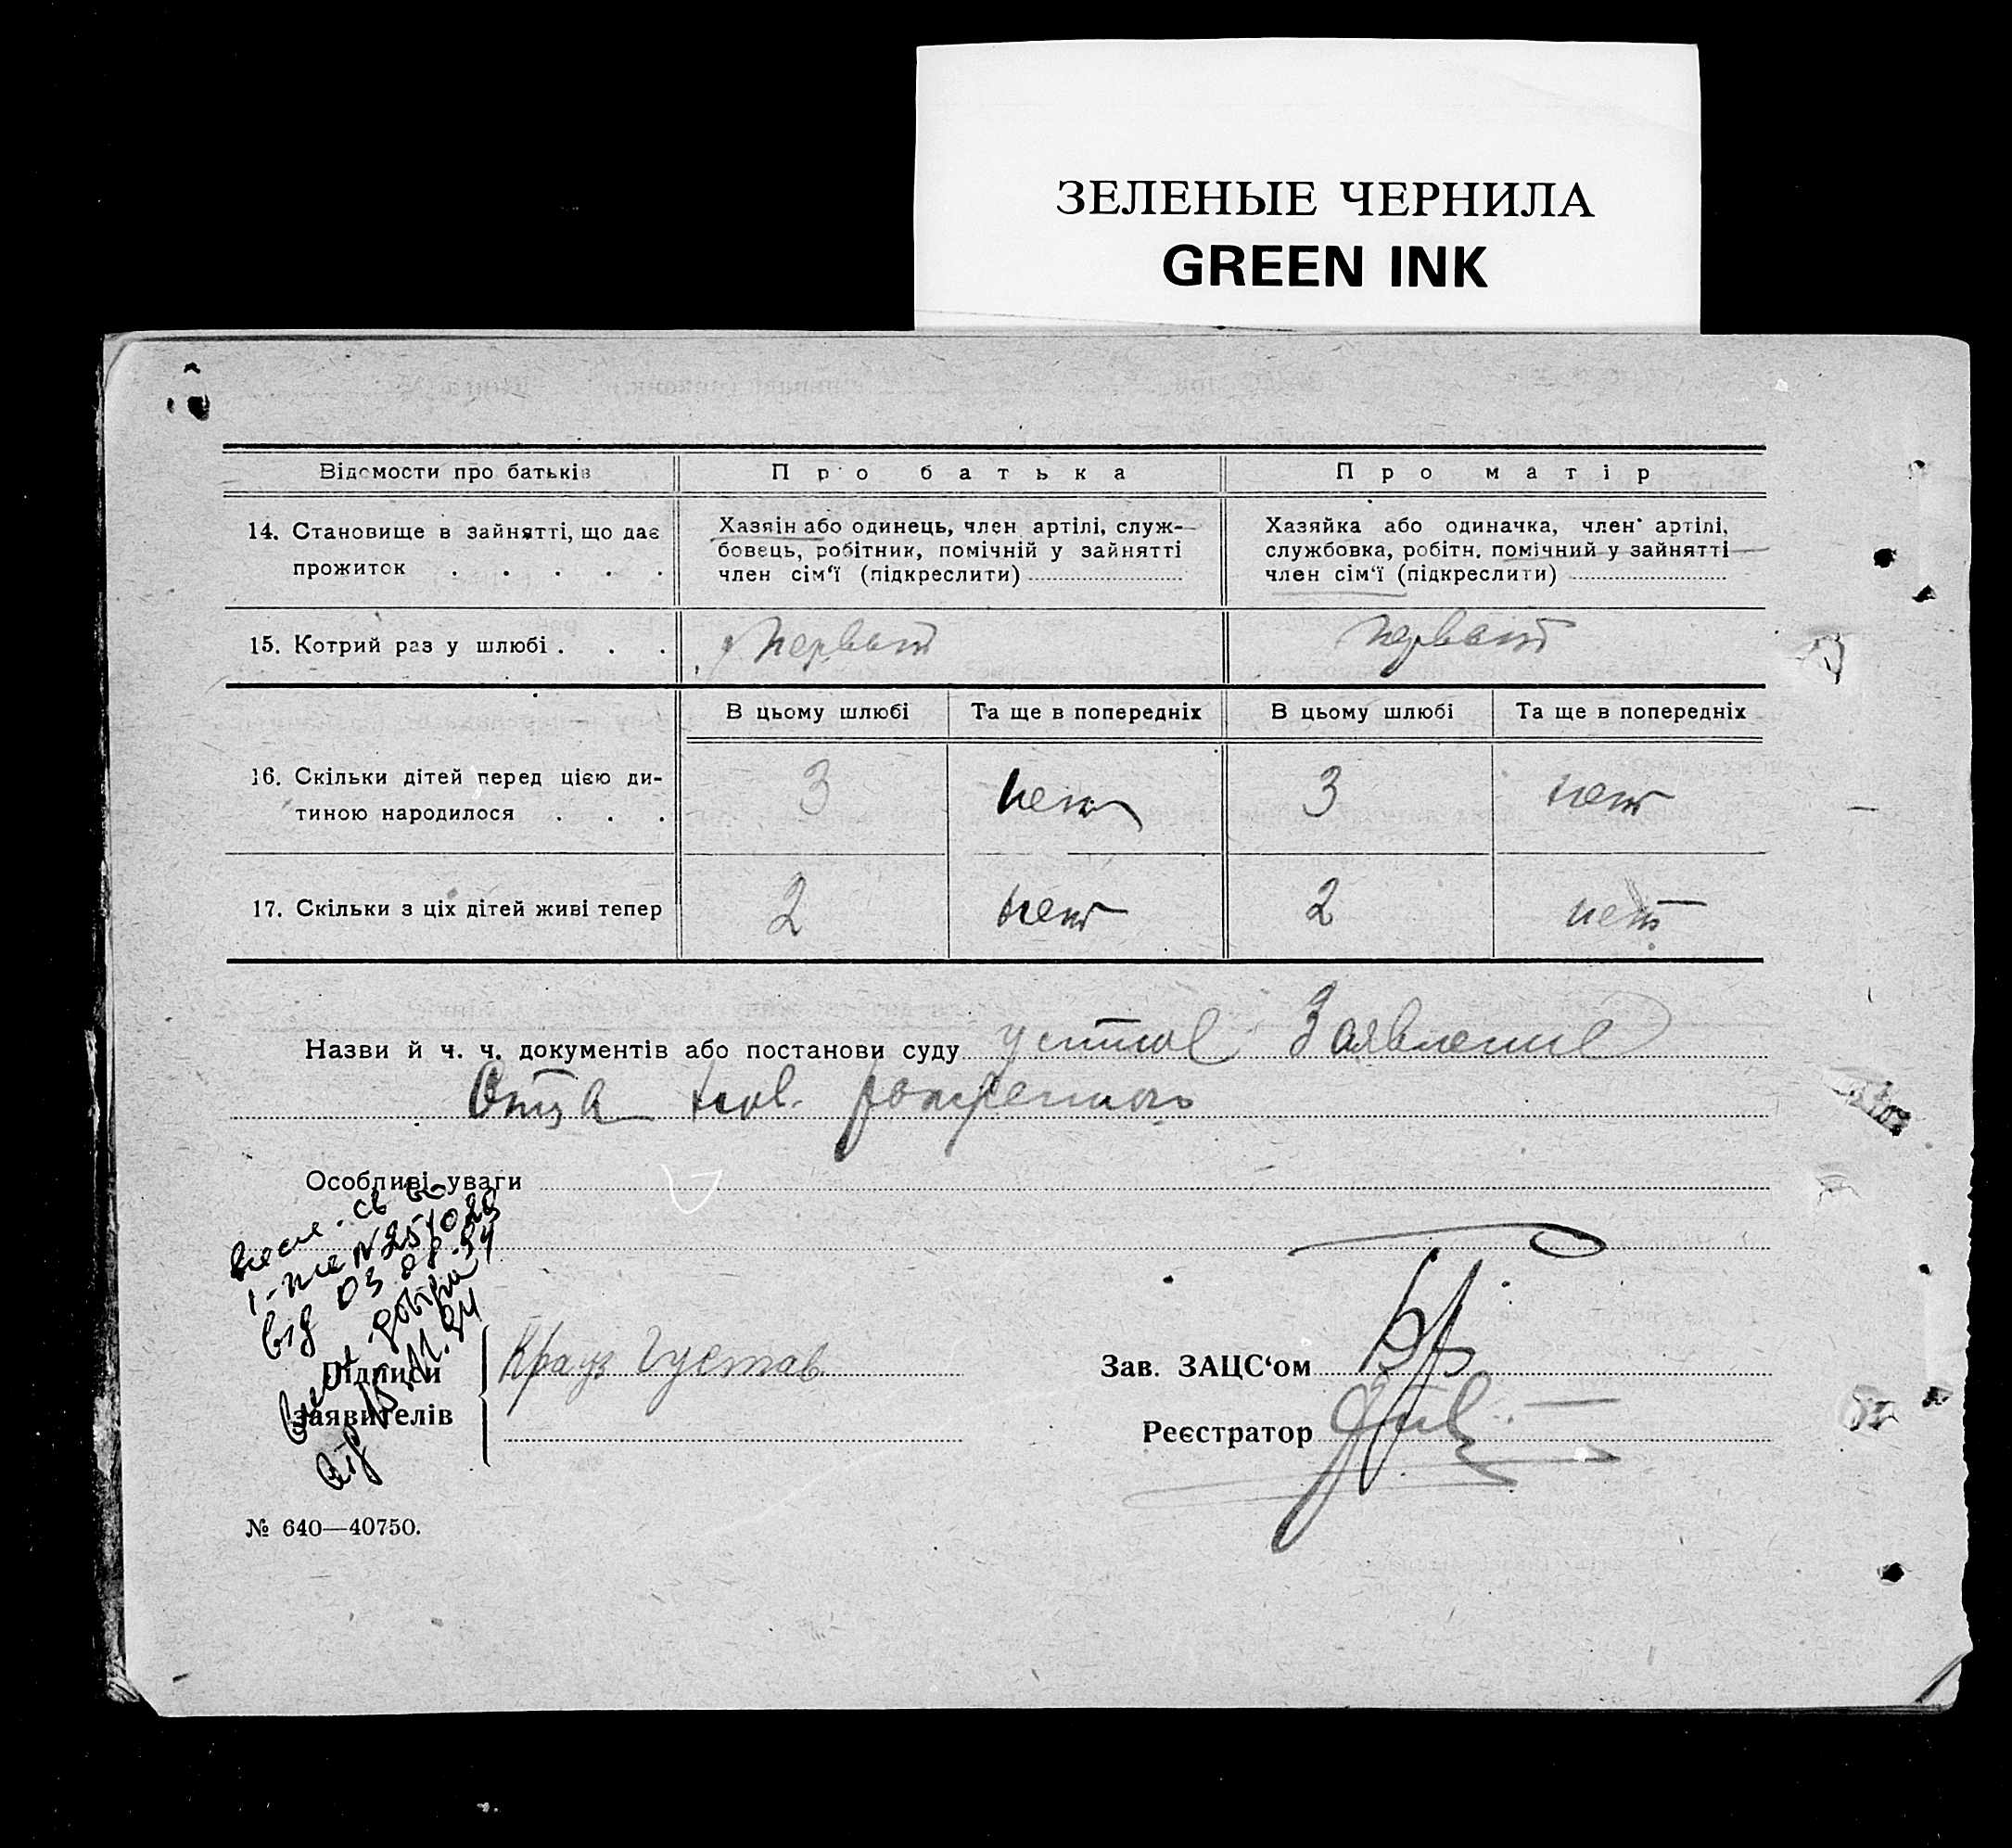 ЗЕЛЕНЫЕ ЧЕРНИЛА
GREEN INK
Відомости про батьків
Про батька
Про матір
14. Становище в зайнятті, що дає
прожиток . . . . .
Хазяін або одинець, член артілі, служ-
бовець, робітник, помічній у зайнятті
член сім‘ї (підкреслити)
Хазяйка або одиначка, член артілі,
службовка, робітн. помічний у зайнятті
член сім‘ї (підкреслити)
15. Котрий раз у шлюбі . . .
первый
первый
В цьому шлюбі
Та ще в попередніх
В цьому шлюбі
Та ще в попередніх
16. Скільки дітей перед цією ди-
тиною народилося . . .
3
нет
3
нет
17. Скільки з ціх дітей живі тепер
2
нет
2
нет
Назви й ч. ч. документів або постанови суду устное Заявление
Отца нов. рожденного
Особливі уваги
від 03 08.94
Підписи
заявителів
Крауз Густав
Зав. ЗАЦС‘ом
Реєстратор
№ 640—40750.